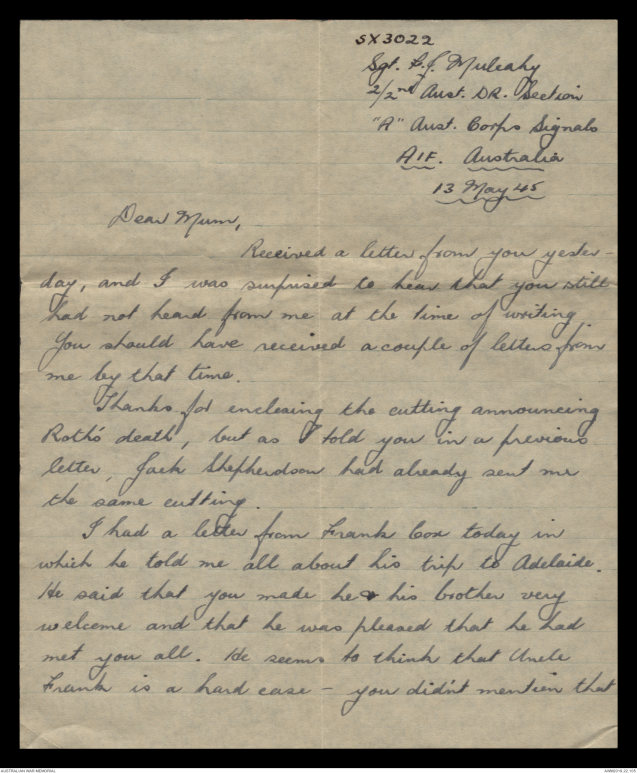 SX3022
Sgt. F.J. Mulcahy
2/2nd Aust. DR. Section
"A" Aust. Corps Signals
AIF. Australia
13 May 45
Dear Mum,
Received a letter from you yester-
day, and I was surprised to hear that you still
had not heard from me at the time of writing.
You should have received a couple of letters from
me by that time.
Thanks for enclosing the cutting announcing
Roth's death, but as I told you in a previous
letter, Jack Shepherdson had already sent me
the same cutting.
I had a letter from Frank Cox today in
which he told me all about his trip to Adelaide.
He said that you made he & his brother very
welcome and that he was pleased that he had
met you all. He seems to think that Uncle
Frank is a hard case - you didn't mention that
AUSTRALIAN WAR MEMORIAL